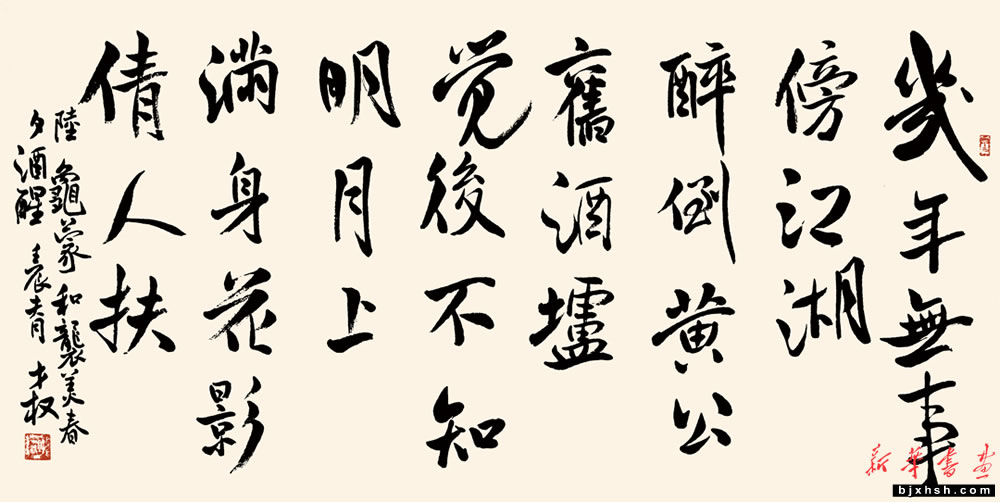 幾年無事
傍江湖
醉倒黄公
舊酒壚
觉後不知
明月上
满身花影
倩人扶
陸龜蒙和襲美春
夕酒醒 壬辰春月 才权
新华书画
bjxhsh.com